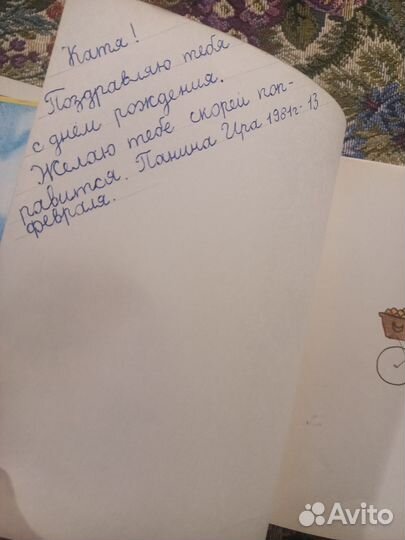 Катя!
Поздравляю тебя
с днём рождения.
Желаю тебе скорей поп-
равится. Панина Ира 1981г. 13
февраля.
Avito